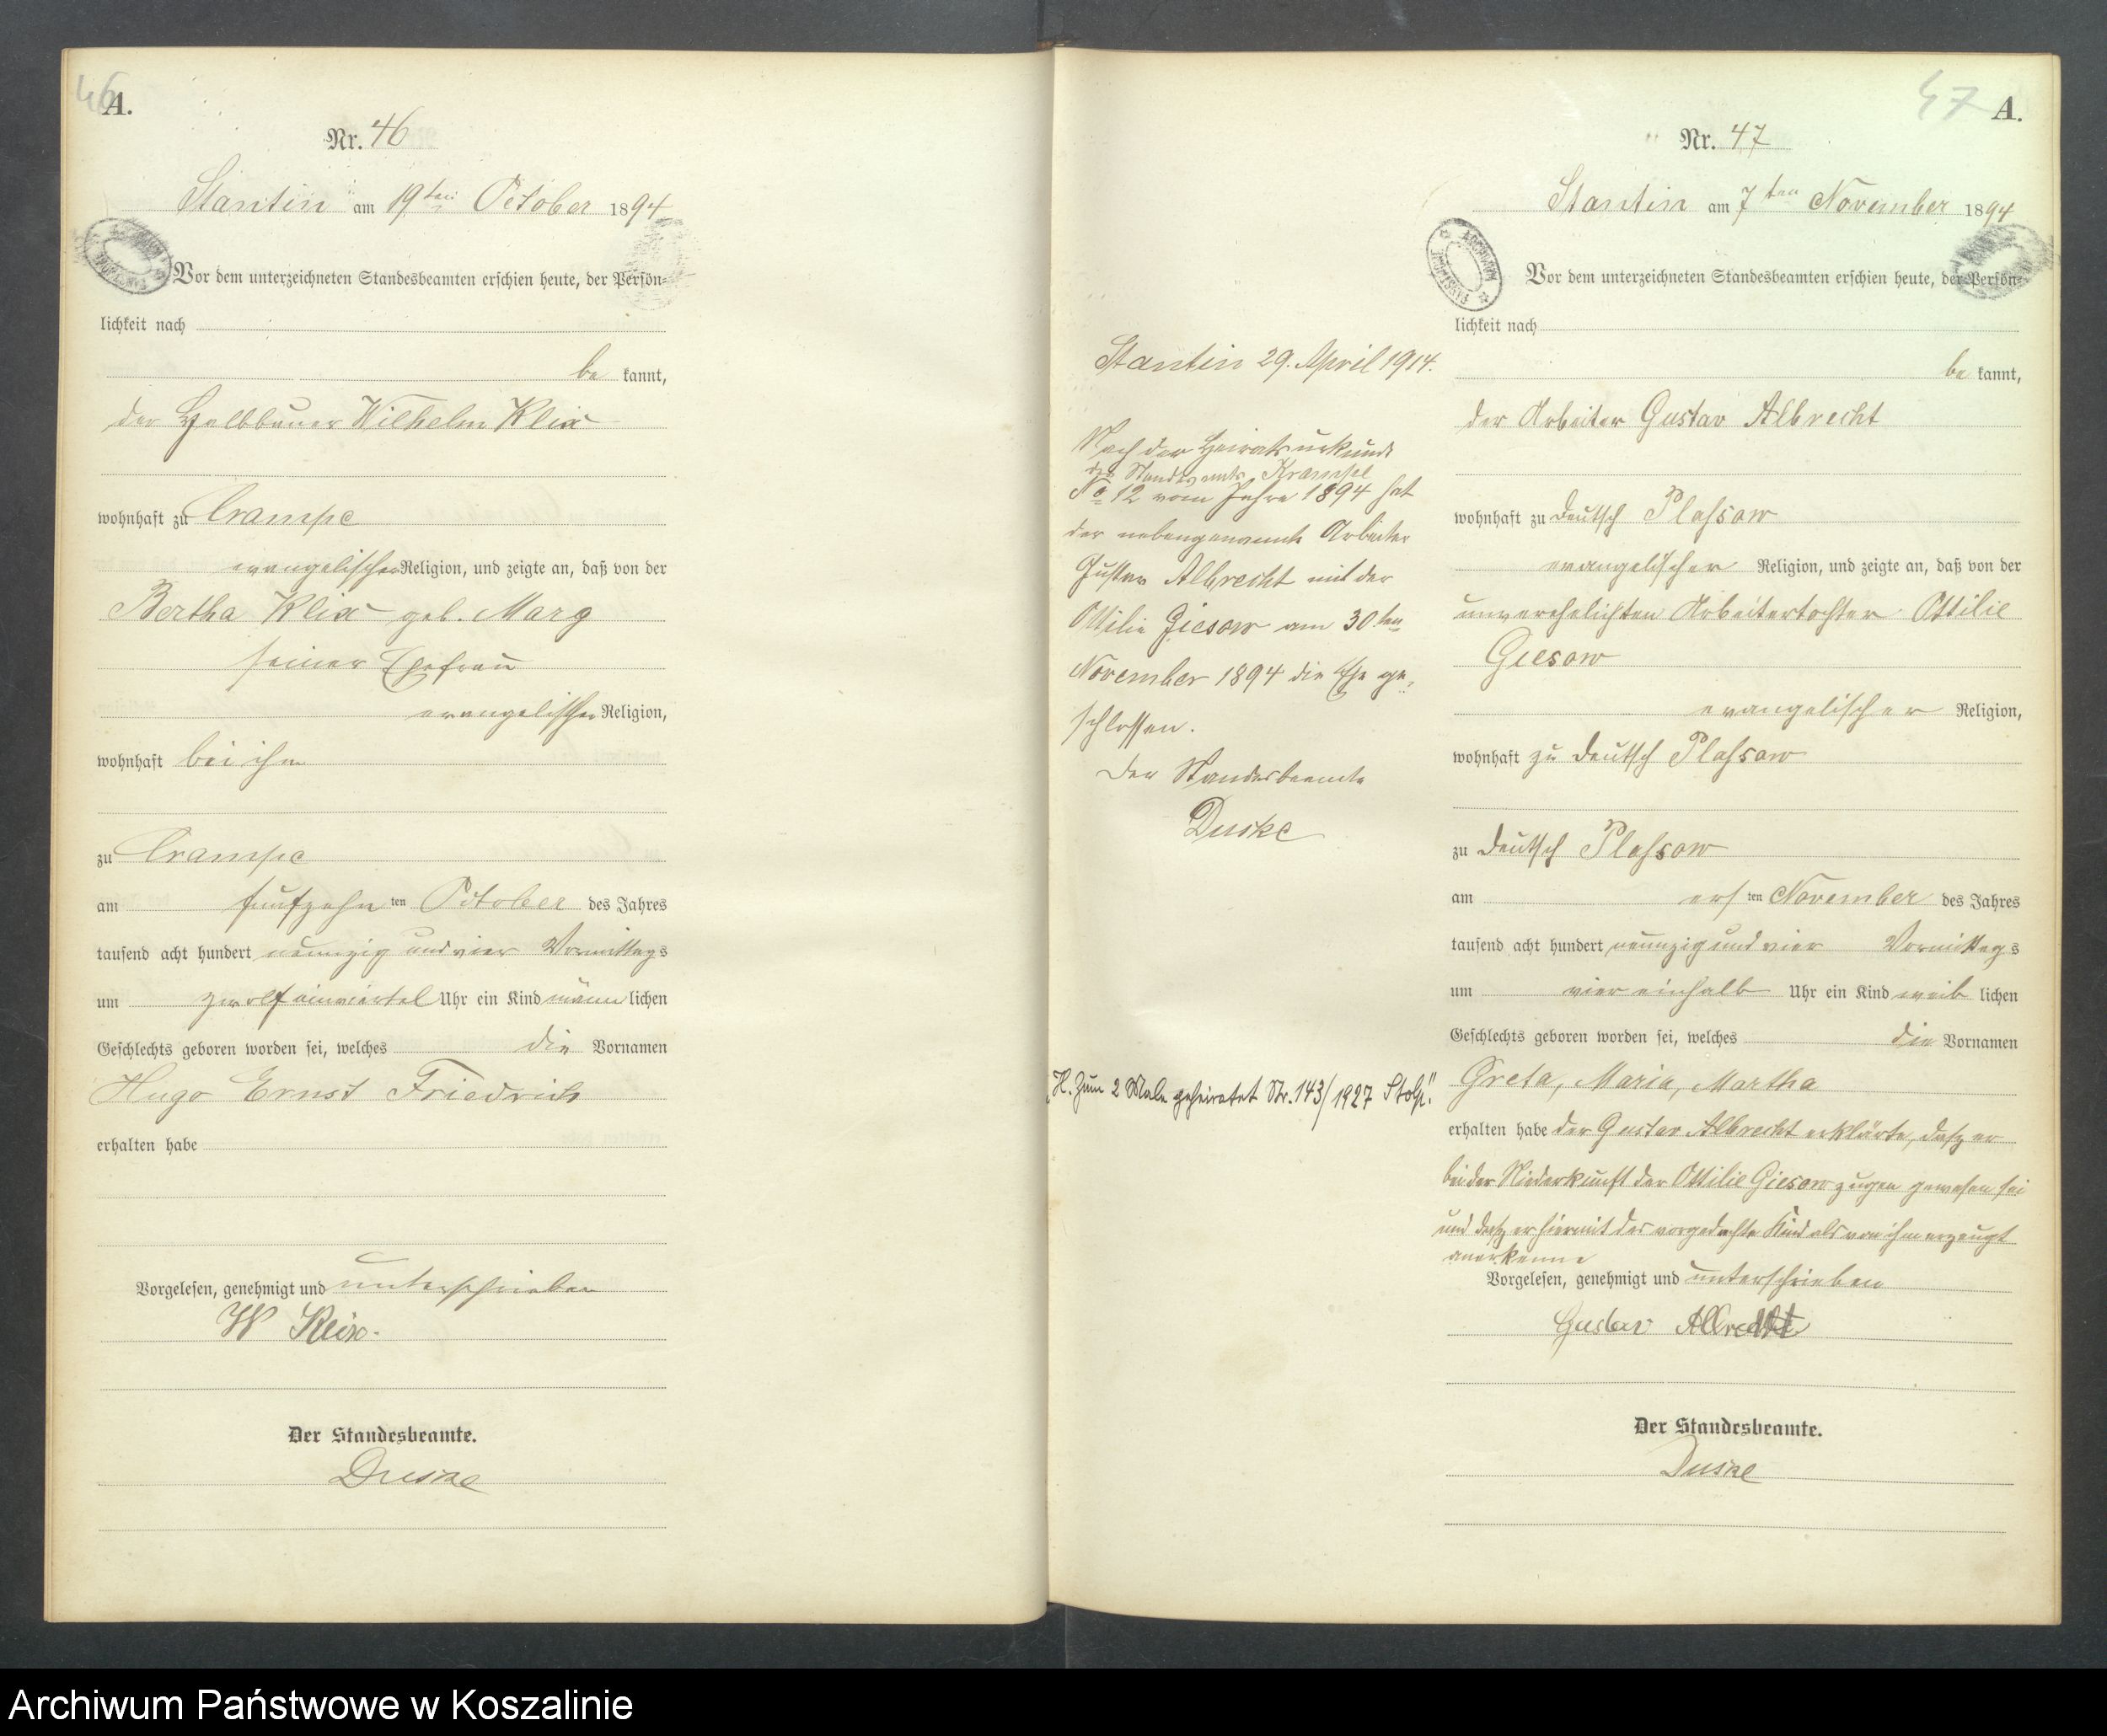 46
A.
Nr. 46
Stantin am 19ten October 1894
Vor dem unterzeichneten Standesbeamten erschien heute, der Persön-
lichkeit nach
be kannt,
der Halbbauer Wilhelm Klix
wohnhaft zu Crampe
evangelischer Religion, und zeigte an, daß von der
Bertha Klix geb. Marg
seiner Ehefrau
evangelischer Religion,
wohnhaft bei ihm
zu Crampe
am fünfzehn ten October des Jahres
tausend acht hundert neunzig und vier Vormittags
um zwölf einviertel Uhr ein Kind männ lichen
Geschlechts geboren worden sei, welches die Vornamen
Hugo Ernst Friedrich
erhalten habe
Vorgelesen, genehmigt und unterschrieben
W Klix.
Der Standesbeamte.
Duske
Stantin 29. April 1914.
Nach der Heiratsurkunde
des Standesamts Krampe
No 12 vom Jahre 1894 hat
der nebengenannte Arbeiter
Gustav Albrecht mit der
Ottilie Giesow am 30ten
November 1894 die Ehe ge-
schlossen.
Der Standesbeamte
Duske
H. Zum 2 Male geheiratet Nr. 143/1927 Stolp."
47
A.
Nr. 47
Stantin am 7ten November 1894
ARCHIWUM PAŃSTWOWE
Vor dem unterzeichneten Standesbeamten erschien heute, der Persön-
lichkeit nach
be kannt,
der Arbeiter Gustav Albrecht
wohnhaft zu Deutsch Plassow
evangelischer Religion, und zeigte an, daß von der
unverehelichten Arbeitertochter Ottilie
Giesow
evangelischer Religion,
wohnhaft zu Deutsch Plassow
zu Deutsch Plassow
am ers ten November des Jahres
tausend acht hundert neunzig und vier Vormittags
um vier einhalb Uhr ein Kind weib lichen
Geschlechts geboren worden sei, welches die Vornamen
Greta, Maria, Martha
erhalten habe der Gustav Albrecht erklärte, daß er
bei der Niederkunft der Ottilie Giesow zugen gewesen sei
und daß er hiermit das vorgedachte Kind als von ihm erzeugt
anerkenne
Vorgelesen, genehmigt und unterschrieben
Gustav Albrecht
Der Standesbeamte.
Duske
Archiwum Państwowe w Koszalinie